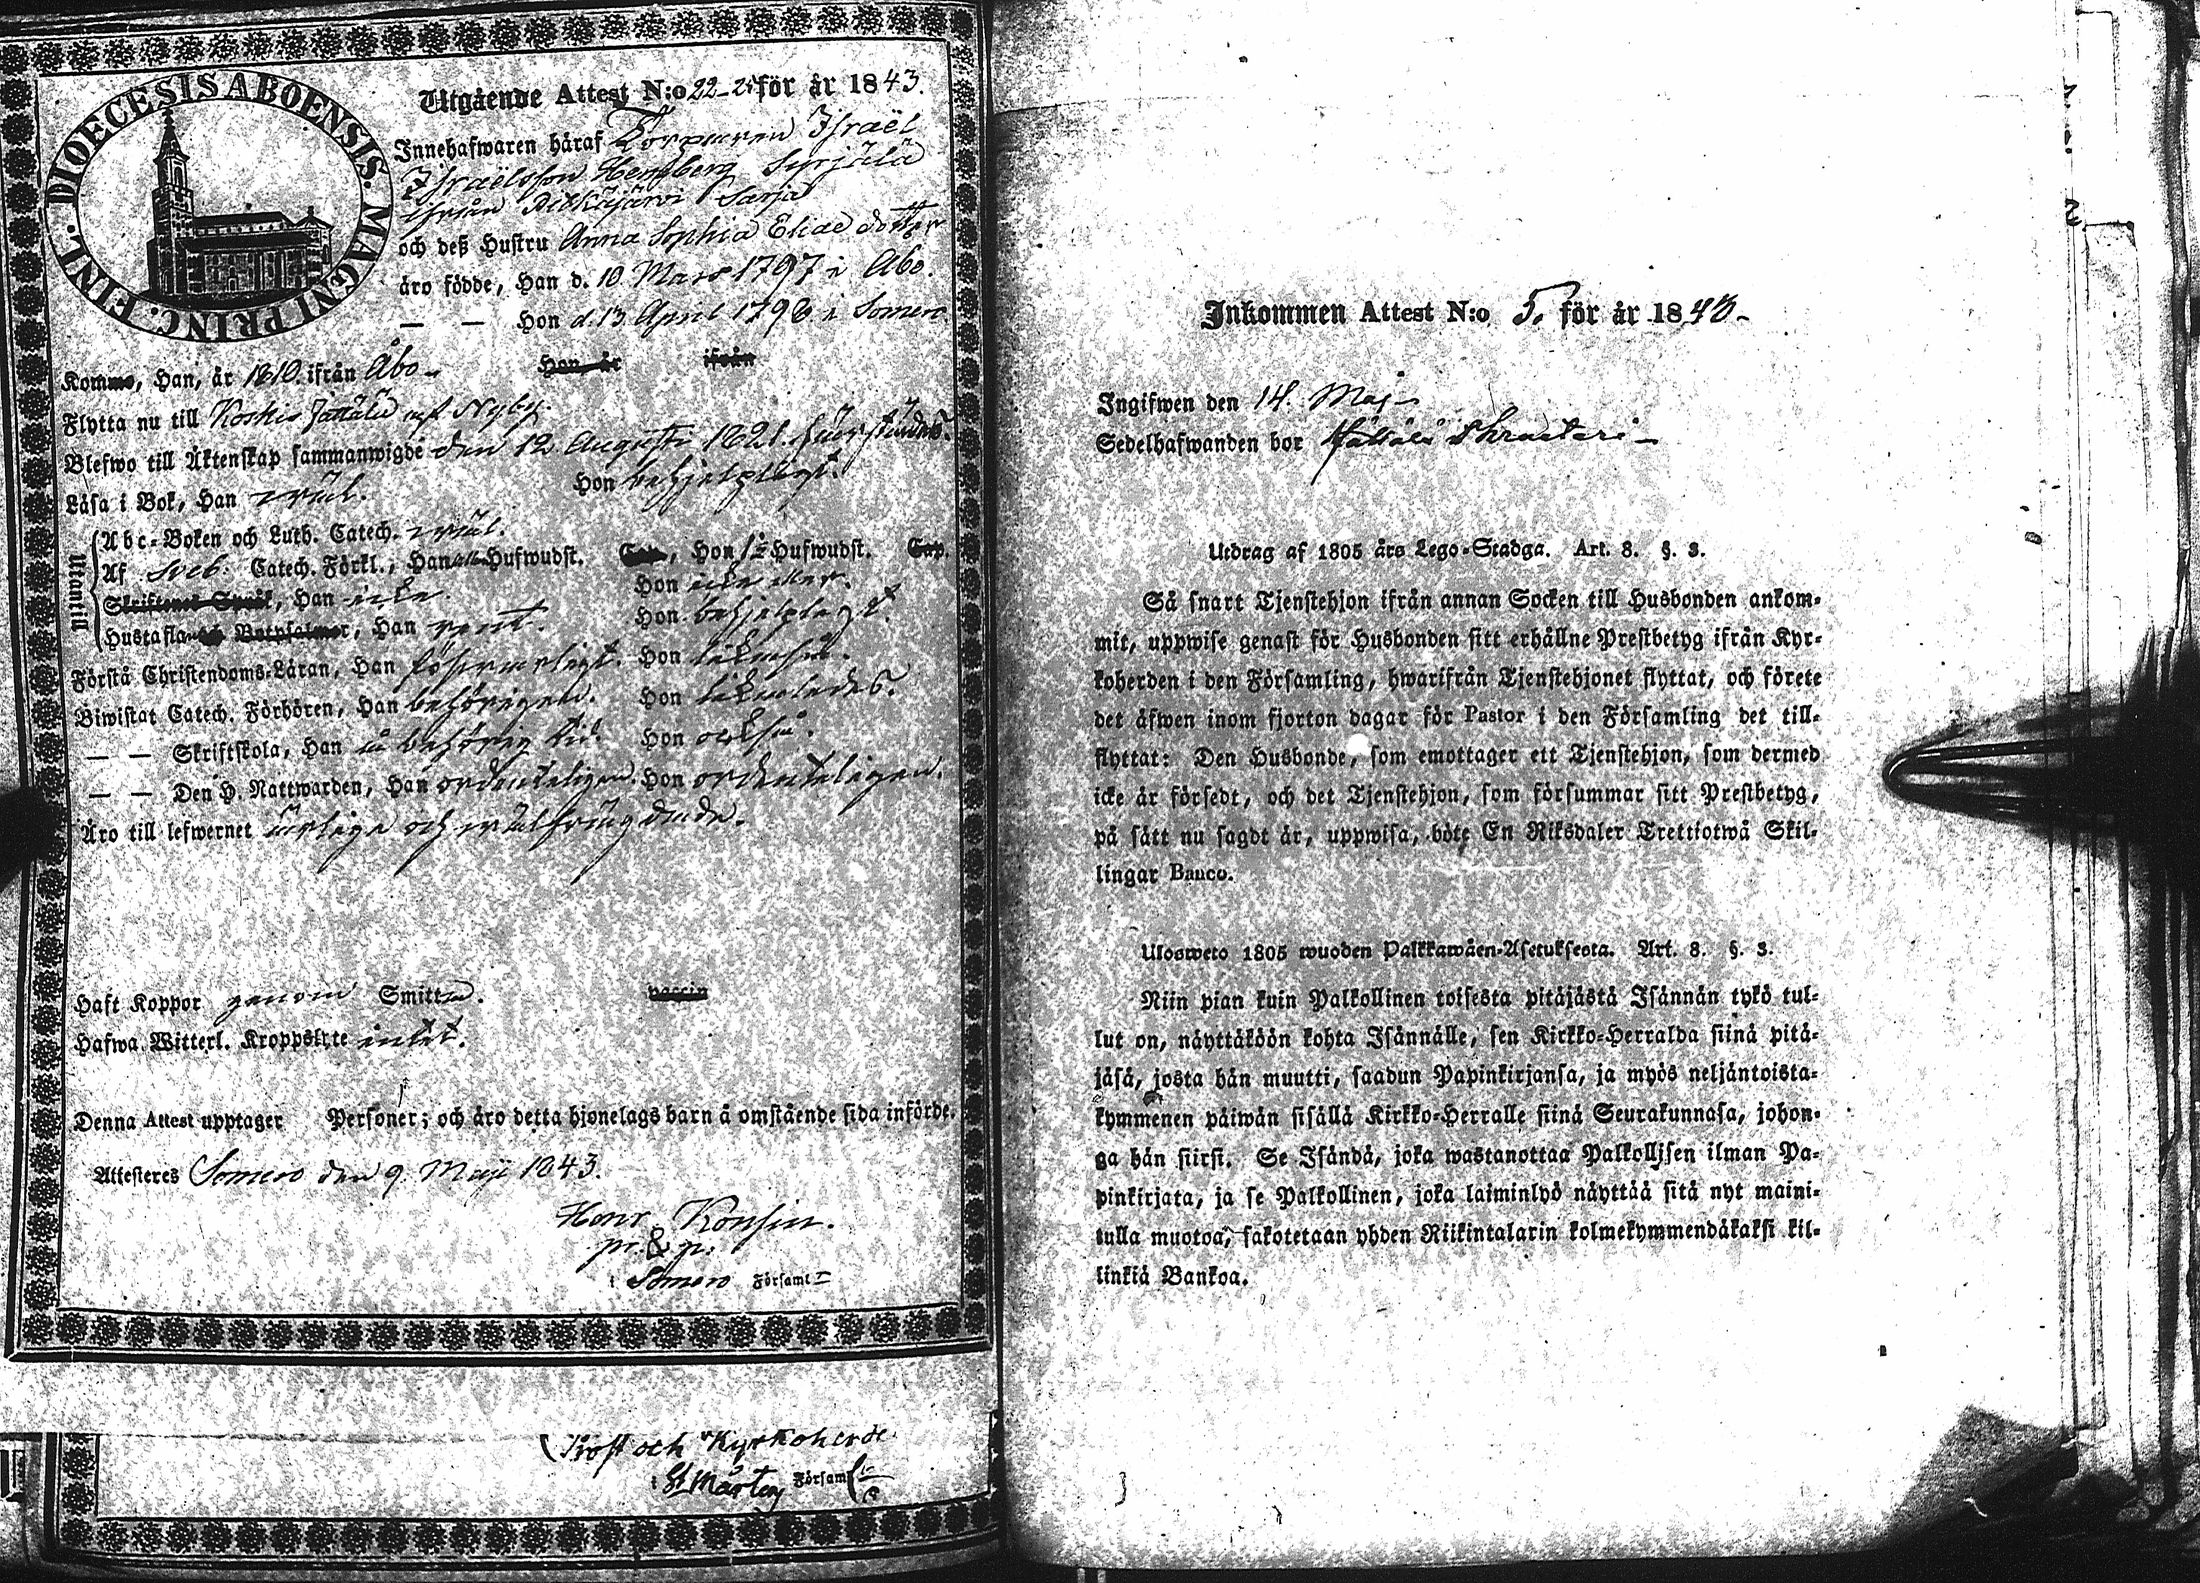 DIOECESIS ABOENSIS. MAGNI PRINC. FINL.
Utgående Attest N:o 22 för år 1843.
Innehafwaren häraf Torparen Israël
Israëlsson Syrjälä
ifrån Pitkäjärvi
och deß Hustru Anna Sophia Eliae dotter
äro födde, Han d. 10 Mars 1797 i Åbo.
— — Hon d. 13 April 1796 i Somero
Komme, Han, år 1810. ifrån Åbo – Hon år ifrån
Flytta nu till Koskis af Nyby.
Blefwo till Äktenskap sammanwigde den 12 Augusti 1821.
Läsa i Bok, Han wäl. Hon behjelpligt.
Utantill
Abc-Boken och Luth. Catech. wäl.
Af Sveb. Catech. Förkl., Han Hufwudst. Cap., Hon 1½ Hufwudst. Cap.
Skriftenes Språk, Han icke Hon icke eller.
Hustaflan och Botpsalmer, Han rent. Hon behjelpligt
Förstå Christendoms-Läran, Han försvarligt. Hon likaså.
Biwistat Catech. Förhören, Han behörigen. Hon likaledes.
— — Skriftskola, Han å behörig tid. Hon också.
— — Den H. Nattwarden, Han ordenteligen. Hon ordenteligen.
Äro till lefwernet ärliga och wälfrägdade.
Haft Koppor genom Smitta. vaccin
Hafwa Witterl. Kroppslyte intet.
Denna Attest upptager Personer; och äro detta hjonelags barn å omstående sida införde.
Attesteres Somero den 9. Maji 1843.
Henr. Konsin.
pr. & p.
i Somero Församl
Prost och Kyrkoherde
i St Mårtens Församl
Inkommen Attest N:o 5. för år 1843 –
Ingifwen den 14. Maj –
Sedelhafwanden bor
Utdrag af 1805 års Lego-Stadga. Art. 8. §. 3.
Så snart Tjenstehjon ifrån annan Socken till Husbonden ankom-
mit, uppwise genast för Husbonden sitt erhållne Prestbetyg ifrån Kyr-
koherden i den Församling, hwarifrån Tjenstehjonet flyttat, och förete
det äfwen inom fjorton dagar för Pastor i den Församling det till-
flyttat: Den Husbonde, som emottager ett Tjenstehjon, som dermed
icke är försedt, och det Tjenstehjon, som försummar sitt Prestbetyg,
på sätt nu sagdt är, uppwisa, böte En Riksdaler Trettiotwå Skil-
lingar Banco.
Ulosweto 1805 wuoden Palkkawäen-Asetuksesta. Art. 8. §. 3.
Niin pian kuin Palkollinen toisesta pitäjästä Isännän tykö tul-
lut on, näyttäköön kohta Isännälle, sen Kirkko-Herralda siinä pitä-
jäsä, josta hän muutti, saadun Papinkirjansa, ja myös neljäntoista-
kymmenen päiwän sisällä Kirkko-Herralle siinä Seurakunnasa, johon-
ga hän siirsi. Se Isändä, joka wastanottaa Palkollisen ilman Pa-
pinkirjata, ja se Palkollinen, joka laiminlyö näyttää sitä nyt maini-
tulla muotoa, sakotetaan yhden Riikintalarin kolmekymmendäkaksi kil-
linkiä Bankoa.